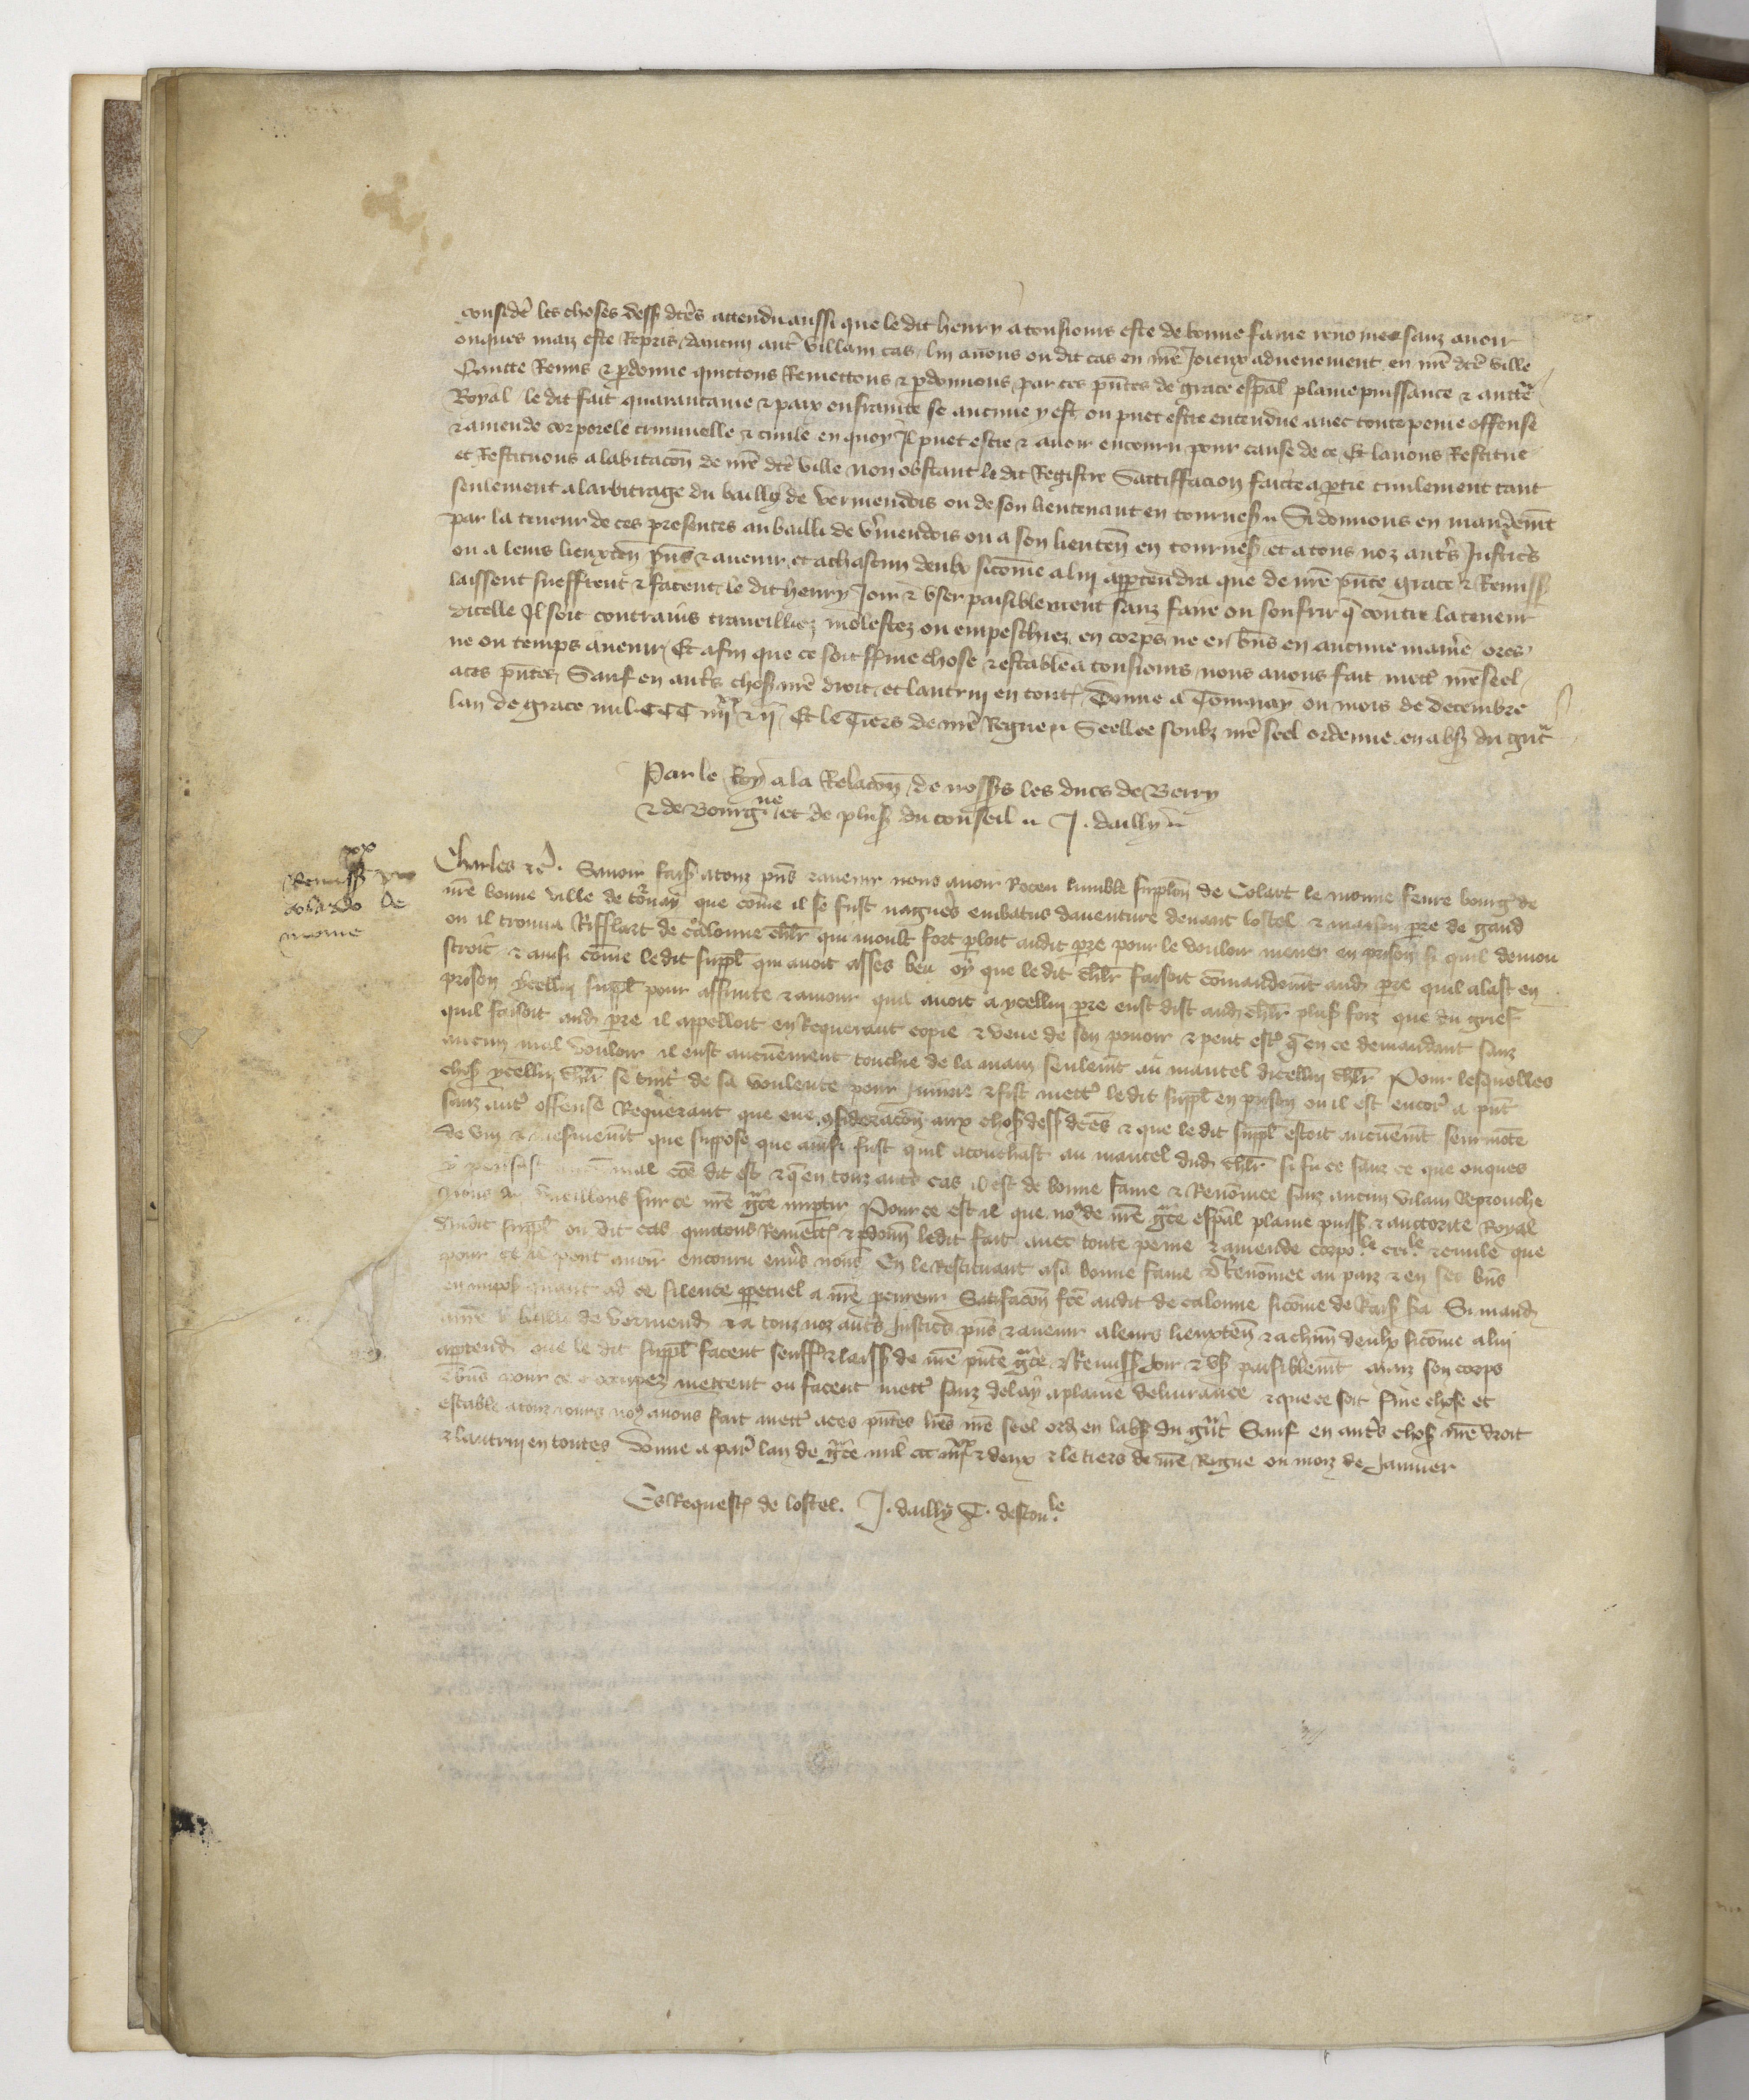 consider̄ les choses dess dc̄es attendu aussi que le dit henry a tousiours este de bonne fame renomee sanz auoir
onques maiz este Repris daucun autr̄ villain cas / lui auons ou dit cas en nr̄e Joieux aduenement en nr̄e dc̄e ville
Quitte Remis & pardonne quictons Remettons & pardonnons par ces pn̄tes de grace esp̄al plaine puissance & auctte
Royal / le dit fait quarantaine & paix enfrainte se aucune y est ou puet estre entendue auec toute peine offense
& amende corporele criminelle & ciuile en quoy Il puet estre & auoir encouru pour cause de ce Et lauons Restitue
et Restituons a labitacōn de nr̄e dc̄e ville non obstant le dit Registre Sattiffacion faicte a ptie ciuilement tant
seulement a larbitrage du bailly de vermendois ou de son lieutenant en tournes̄ Si donnons en mandemt̄
par la teneur de ces presentes au bailli de vmendois ou a son lieuten̄ en tournes̄ et a tous noz autr̄s Justic̄s
ou a leurs lieuxten̄ pn̄s & auenir et a chascun deulx sicom̄e a lui appartendra que de nr̄e pn̄te grace & Remiss
laissent suefftent & facent le dit henry Joir & vser paisiblement sanz faire ou souffrir q̄ contre la teneur
dicelle Il soit contrains traueilliez molestez ou empeschiez en corps ne en bn̄s en aucune manier̄e ores
ne ou temps auenir / Et afin que ce soit ferme chose & estable a tousiours nous auons fait mett̄ nr̄e seel
a ces pn̄tes Sauf en autr̄s chos̄ nr̄e droit et lautruy en tout̄ Donne a Tournay ou mois de decembre
lan de grace mil CCC iiijxx & ij Et le Tiers de nr̄e Regne Seellee soubz nr̄e seel ordenne en abs̄ du grāt
Par le Roy a la Relacōn de noss̄rs les ducs de Berry
& de Bourgne et de plus̄ du conseil J. dailly
xx
Remiss pro
colardo le
moine
Charles &c̄. Sauoir fais̄ a touz pn̄s & auenir nous auoir Receu lumble supplōn de Colart le moine feure bourḡ de
nr̄e bonne ville de to͛nay que com̄e il se fust nagueres embatus dauenture deuant lostel & maison pre de gand
ou il trouua Rifflart de calonne chl̄r qui moult fort ploit audit pre pour le vouloir mener en prison si quil demou
stroit & ainsi com̄e le dit suppl̄ qui auoit asses beu oy que le dit chl̄r faisoit com̄andemt̄ aud pre quil alast en
prison ycellui suppl̄ pour affinite & amour quil auoit a ycellui pre eust dist aud chl̄r plus̄ foiz que du grief
quil faisoit aud pre il appelloit en Requerant copie & veue de son pouoir & peut estr̄ q̄ en ce demandant sanz
aucun mal vouloir il eust aucunement touchie de la main seulemt̄ au mantel dicellui chl̄r Pour lesquelles
chos̄ ycellui chl̄r se tint de sa voulente pour Iniurie & fist mett̄ le dit suppl̄ en prison ou il est encor̄ a pn̄t
sanz autr̄ offense Requerant que eue consideracōn aux chos̄ dess dc̄es & que le dit suppl̄ estoit aucunemt̄ seurmote
de vin & mesmemt̄ que suppose que ainsi fust quil atouchast au mantel dud chl̄r si fu ce sanz ce que onques
y pensast mal com̄e dit est & q̄ en touz autr̄s cas il est de bonne fame & Renom̄ee sanz aucun vilain Reprouche
nous li vueillons sur ce nr̄e grāce impartir Pour ce est il que no9 de nr̄e grāce esp̄al plaine puiss & auctorite Royal
audit suppl̄ ou dit cas quittons Remett̄ & pardonn̄ ledit fait auec toute peine & amende corpole crile & ciuile que
pour ce il peut auoir encouru enuers nous En le Restituant a sa bonne fame & Renom̄ee au paiz & en ses bn̄s
en impos̄ quant ad ce silence perpetuel a nr̄e procureur Satisfacōn fc̄e audit de calonne sicom̄e de Rais̄ sa Si mand
a nr̄e bailli de vermend & a touz noz autr̄s Justic̄s pn̄s & auenir a leurs lieuxten̄ & a chūn deulx sicom̄e a lui
appartend que le dit suppl̄ facent seuff̄r & laiss̄ de nr̄e pn̄te grāce & Remiss Joir & vs̄ paisiblemt̄ ainz son corps
& bn̄s pour ce occupez mettent ou facent mett̄ sanz delay a plaine deliurance & que ce soit ferme chose et
estable a touz iours no9 auons fait mett̄ a ces pn̄tes lr̄es nr̄e seel ord̄ en labs̄ du grāt Sauf en autr̄s chos̄ nr̄e droit
& lautruy en toutes Donne a par̄ lan de grāce mil ccc iiijxx & deux & le tiers de nr̄e Regne ou moiz de Januier
Es Request̄ de lostel. J. dailly T. destoule